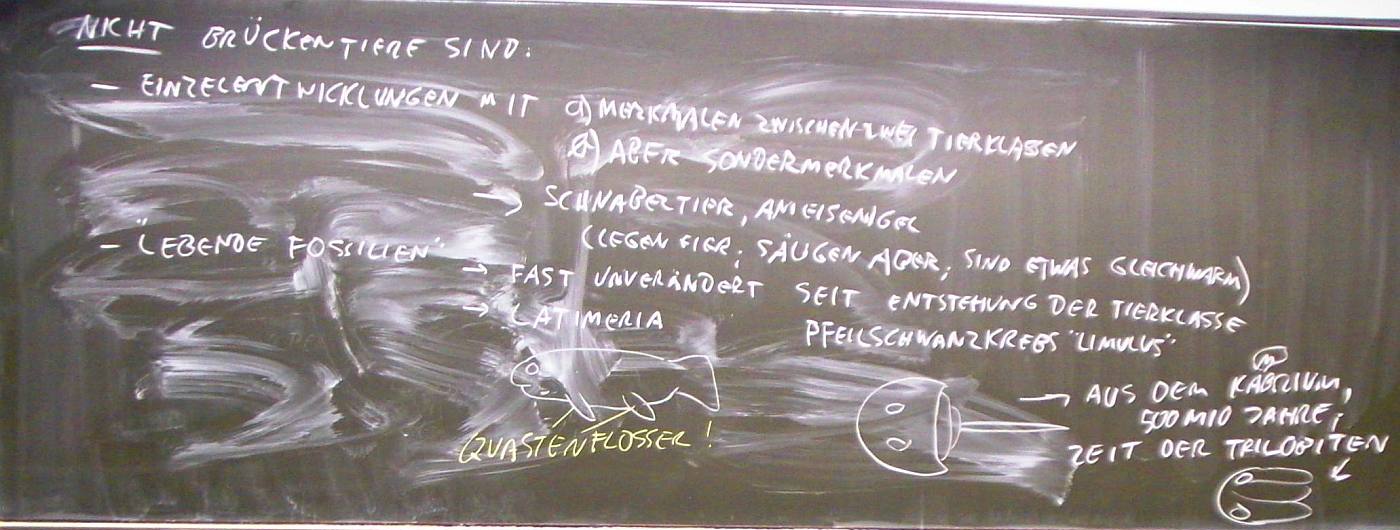 NICHT BRÜCKENTIERE SIND:
- EINZELENTWICKLUNGEN MIT a) MERKMALEN ZWISCHEN ZWEI TIERKLASSEN
b) ABER SONDERMERKMALEN
→ SCHNABELTIER, AMEISENIGEL
(LEGEN EIER; SÄUGEN ABER; SIND ETWAS GLEICHWARM)
- "LEBENDE FOSSILIEN"
→ FAST UNVERÄNDERT SEIT ENTSTEHUNG DER TIERKLASSE
→ LATIMERIA PFEILSCHWANZKREBS "LIMULUS"
QUASTENFLOSSER!
→ AUS DEM KABRIUM,
m
500 MIO JAHRE;
ZEIT DER TRILOBITEN